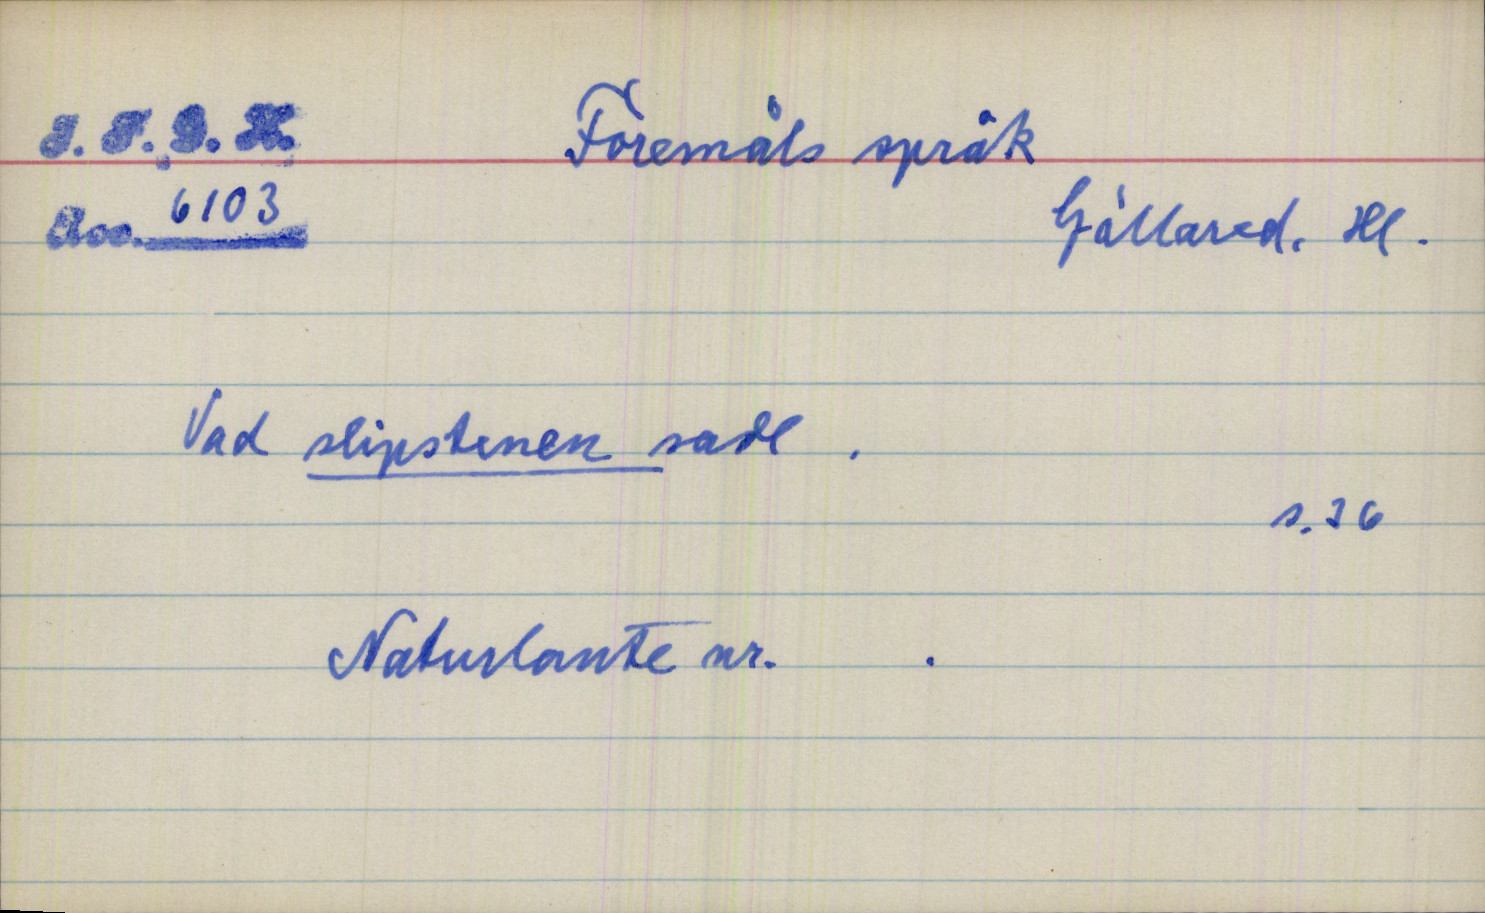 I. F. G. H.
Föremåls språk
Acc. 6103
Gällared. Hl.
Vad slipstenen sade.
s. 36
Naturlante nr. .